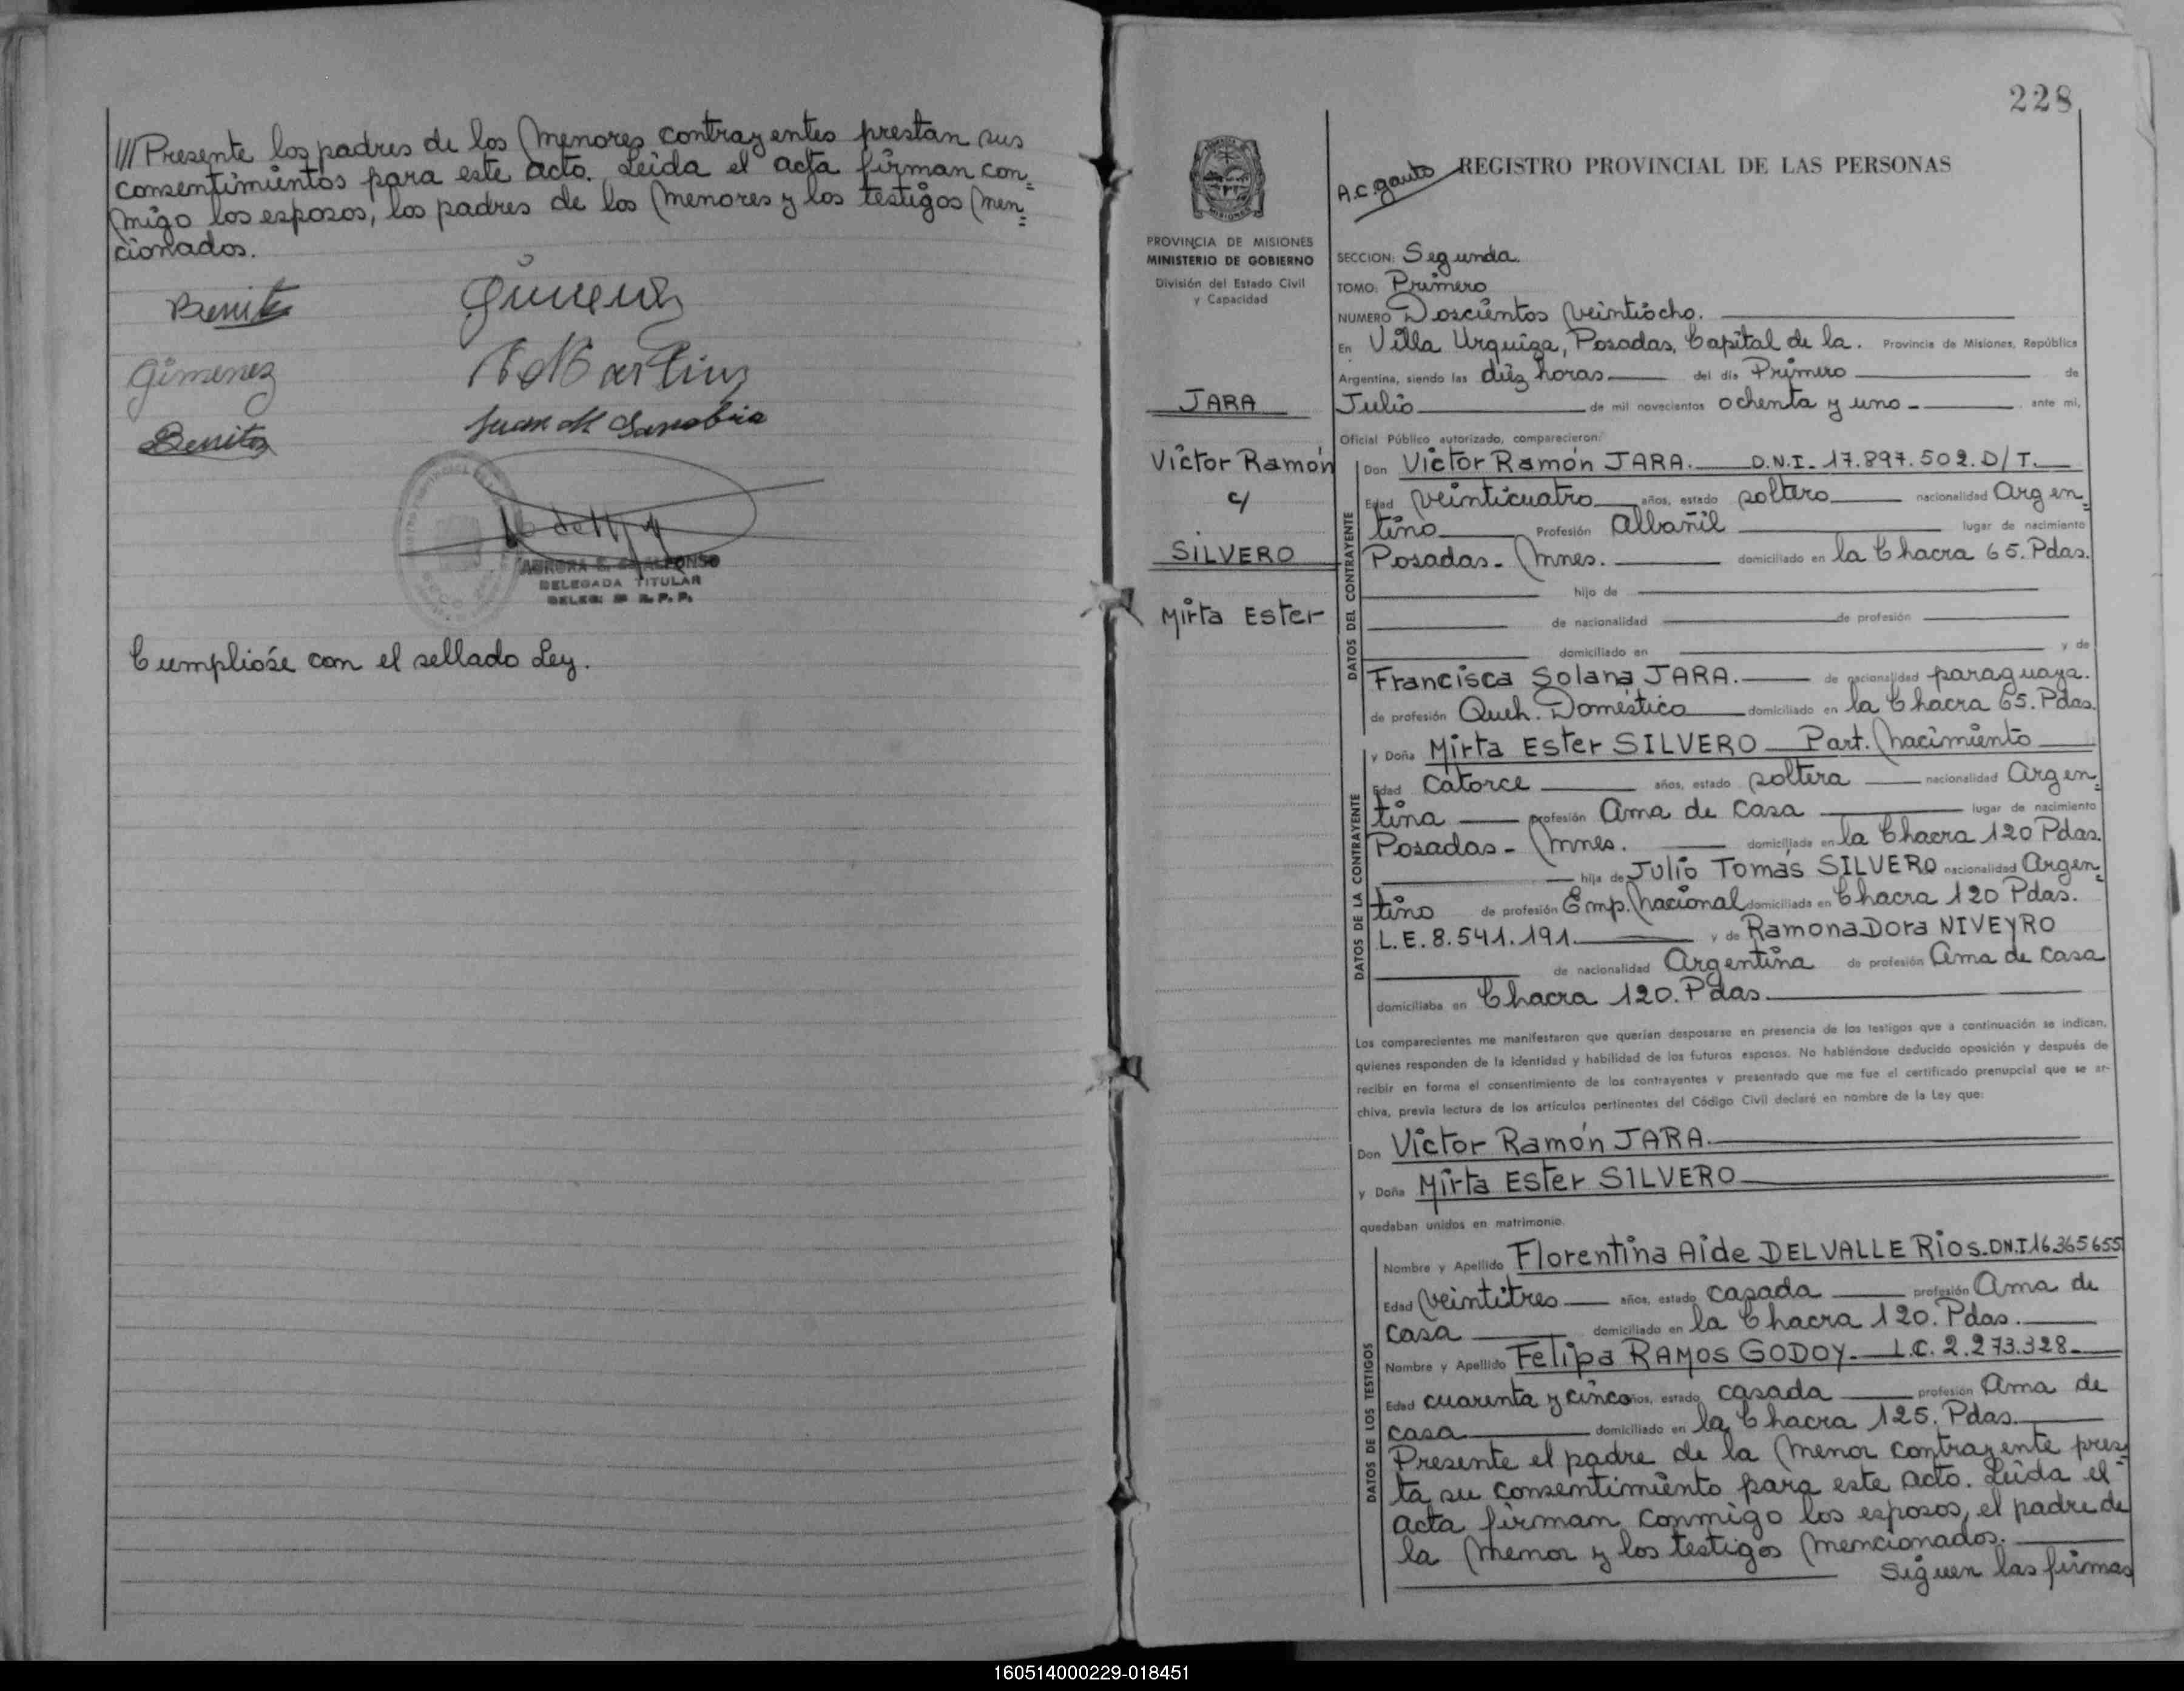 /// Presente los padres de los menores contrayentes prestan sus
consentimientos para este acto. Leida el acta firman con=
migo los esposos, los padres de los menores y los testigos men=
cionados.
Benitez
Gimenez
Benitez
Juan M Sanabria
AURORA E. de ALFONSO
DELEGADA TITULAR
DELEG. 2ª R. P. P.
Cumplióse con el sellado Ley.
228
A.C. gauto
REGISTRO PROVINCIAL DE LAS PERSONAS
PROVINCIA DE MISIONES
MINISTERIO DE GOBIERNO
División del Estado Civil
y Capacidad
JARA
Victor Ramón
c/
SILVERO
Mirta Ester
SECCION: Segunda.
TOMO: Primero
NUMERO Doscientos veintiócho.
En Villa Urquiza, Posadas, Capital de la. Provincia de Misiones, República
Argentina, siendo las diéz horas del día Primero de
Julio de mil novecientos ochenta y uno - ante mi,
Oficial Público autorizado, comparecieron:
DATOS DEL CONTRAYENTE
Don Victor Ramón JARA. D.N.I. 17.897.502. D/T.
Edad veinticuatro años, estado soltero nacionalidad Argen=
tino Profesión Albañil lugar de nacimiento
Posadas - Mnes. domiciliado en la Chacra 65. Pdas.
hijo de
de nacionalidad de profesión
domiciliado en y de
Francisca Solana JARA. de nacionalidad paraguaya.
de profesión Queh. Doméstico domiciliado en la Chacra 65. Pdas.
DATOS DE LA CONTRAYENTE
y Doña Mirta Ester SILVERO Part. Nacimiento
Edad Catorce años, estado soltera nacionalidad Argen=
tina profesión Ama de casa lugar de nacimiento
Posadas - Mnes. domiciliada en la Chacra 120 Pdas.
hija de Julio Tomás SILVERO nacionalidad Argen=
tino de profesión Emp. Nacional domiciliada en Chacra 120 Pdas.
L.E. 8.541.191. y de Ramona Dora NIVEYRO
de nacionalidad Argentina de profesión Ama de casa
domiciliaba en Chacra 120. Pdas.
Los comparecientes me manifestaron que querían desposarse en presencia de los testigos que a continuación se indican,
quienes responden de la identidad y habilidad de los futuros esposos. No habiéndose deducido oposición y después de
recibir en forma el consentimiento de los contrayentes y presentado que me fue el certificado prenupcial que se ar-
chiva, previa lectura de los artículos pertinentes del Código Civil declaré en nombre de la Ley que:
Don Victor Ramón JARA.
y Doña Mirta Ester SILVERO
quedaban unidos en matrimonio.
DATOS DE LOS TESTIGOS
Nombre y Apellido Florentina Aide DELVALLE Rios. DN.I 16.365655
Edad veintitres años, estado casada profesión Ama de
casa domiciliado en la Chacra 120. Pdas.
Nombre y Apellido Felipa RAMOS GODOY. L.C. 2.273.328.
Edad cuarenta y cinco años, estado casada profesión Ama de
casa domiciliado en la Chacra 125. Pdas.
Presente el padre de la menor contrayente pres=
ta su consentimiento para este acto. Leida el
acta firman conmigo los esposos, el padre de
la menor y los testigos mencionados.
Siguen las firmas
160514000229-018451